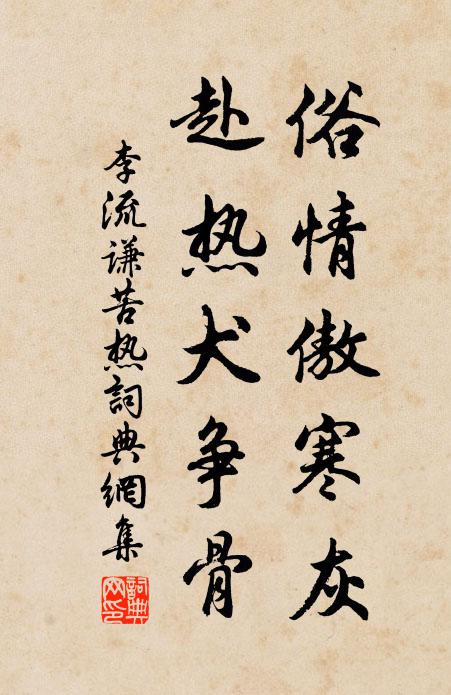 俗情傲寒灰
赴热犬争骨
李流谦苦热詞典網集
詞典网印